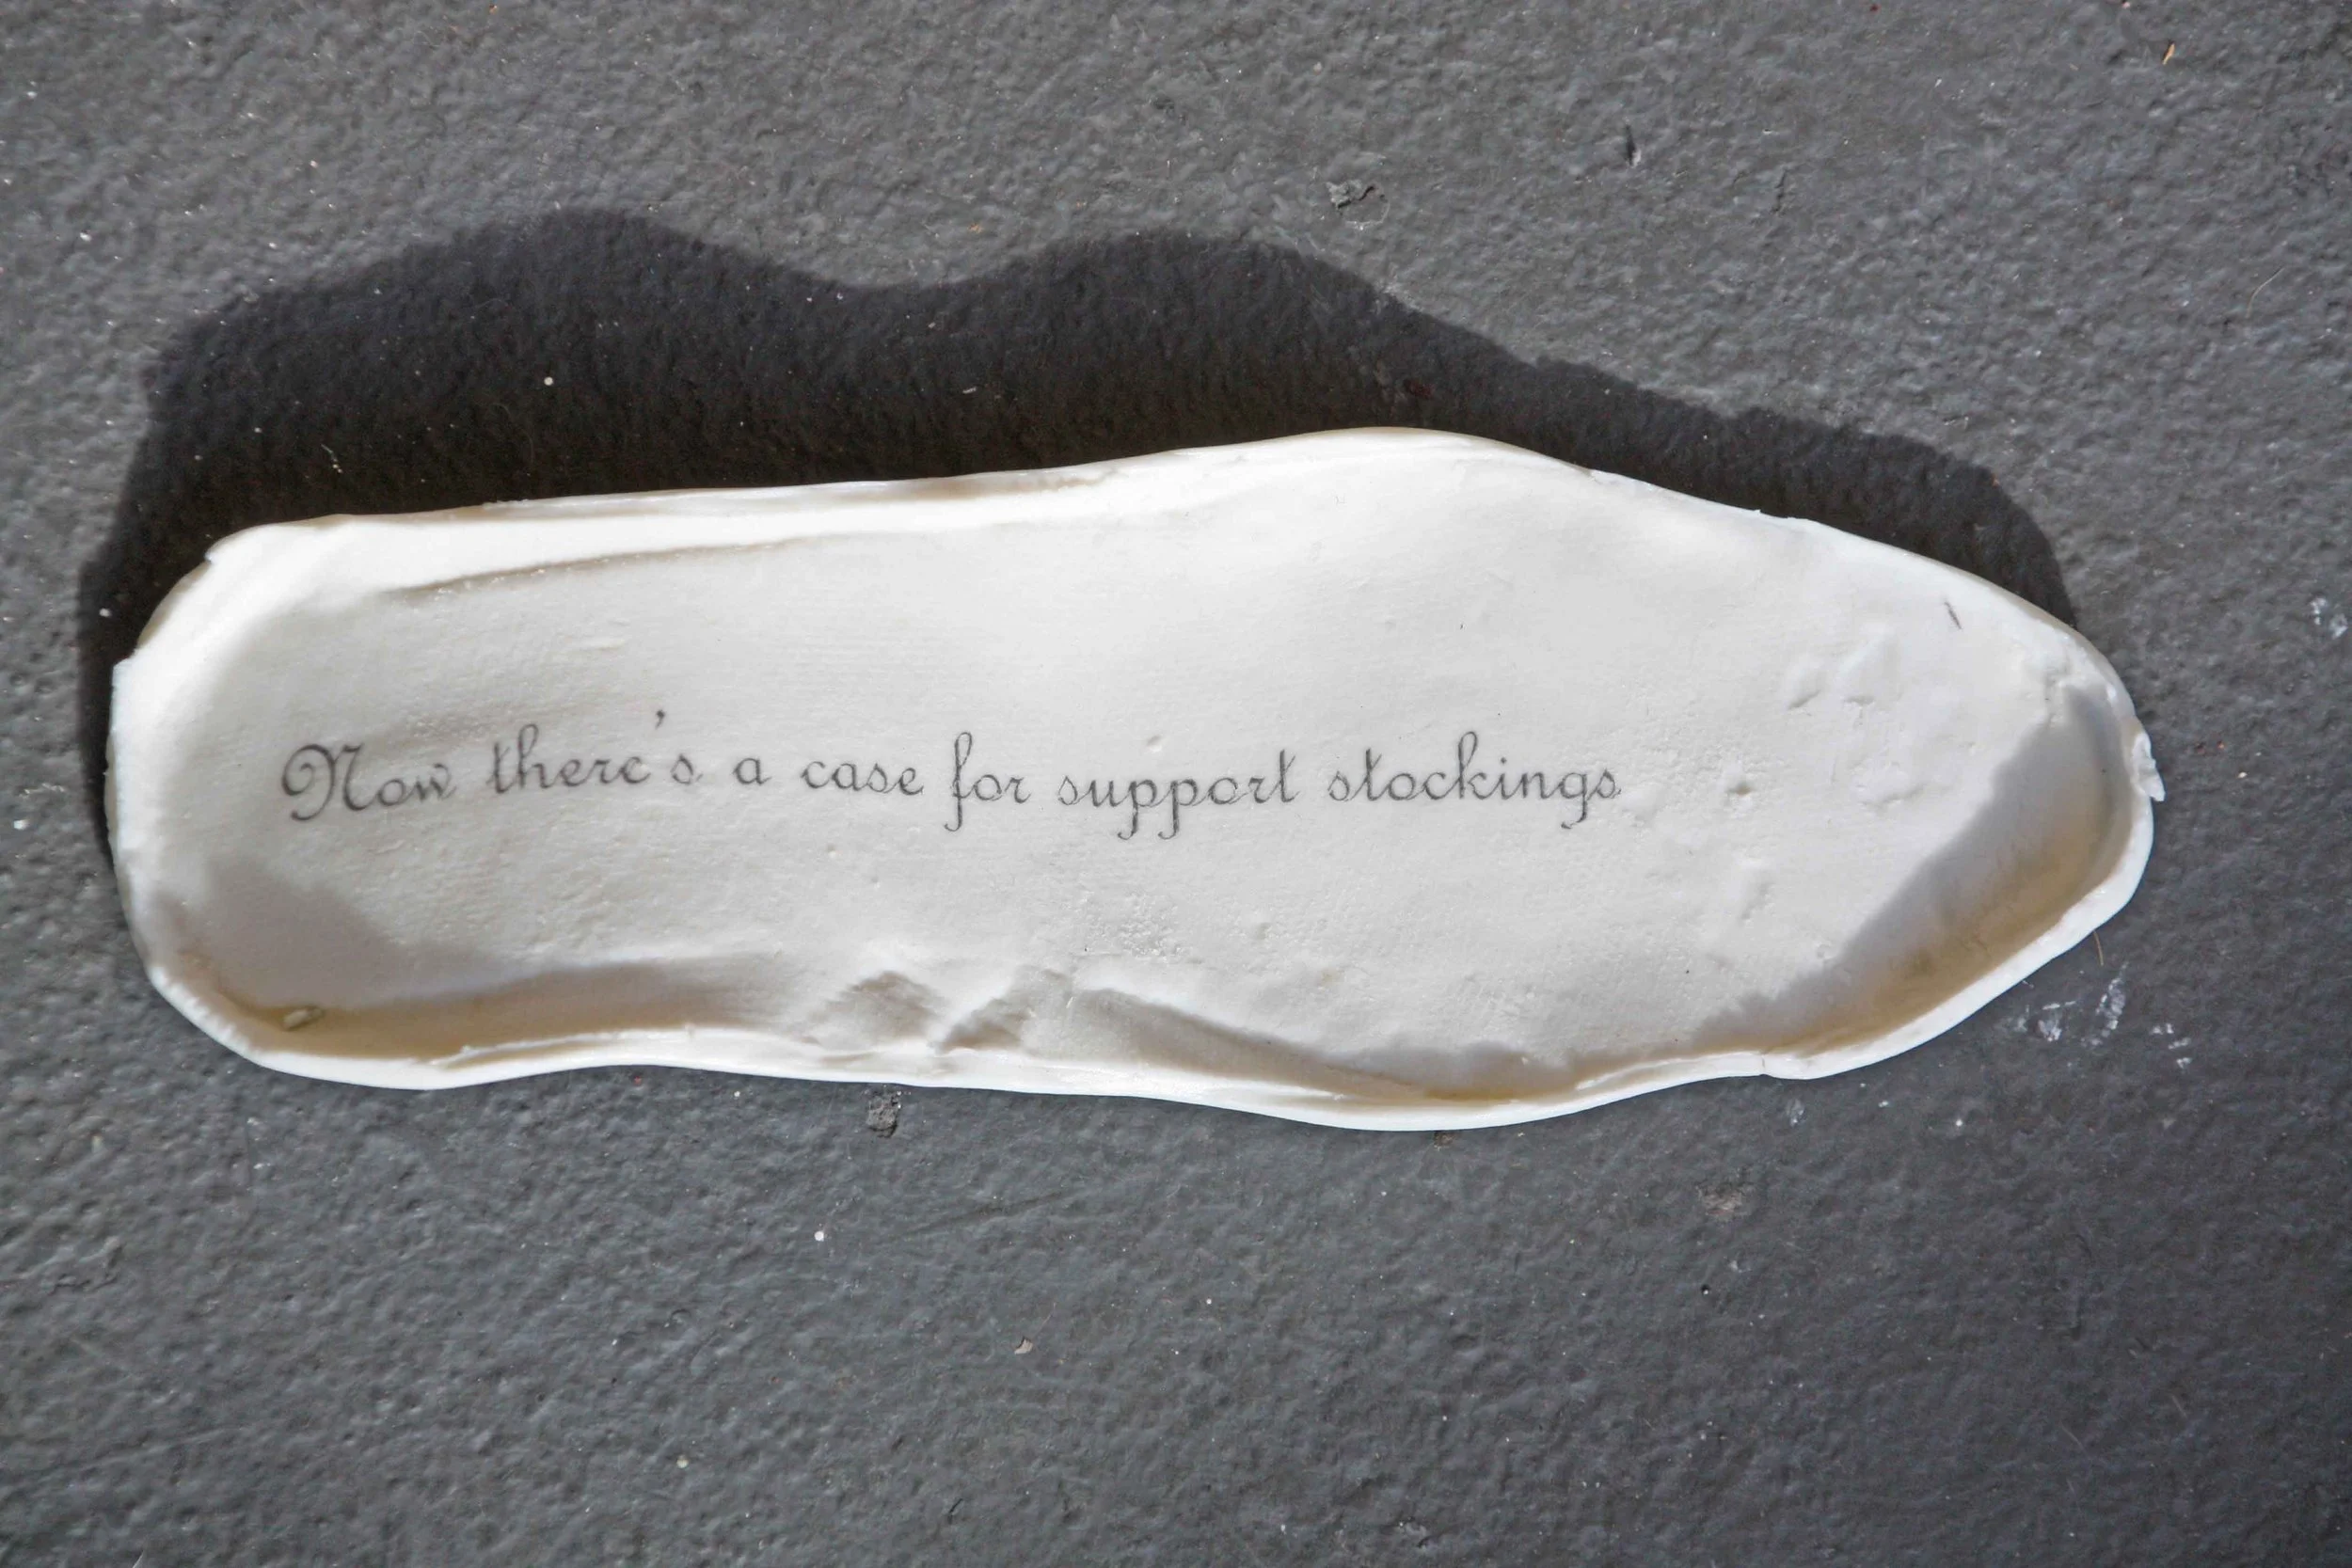 Now there's a case for support stockings